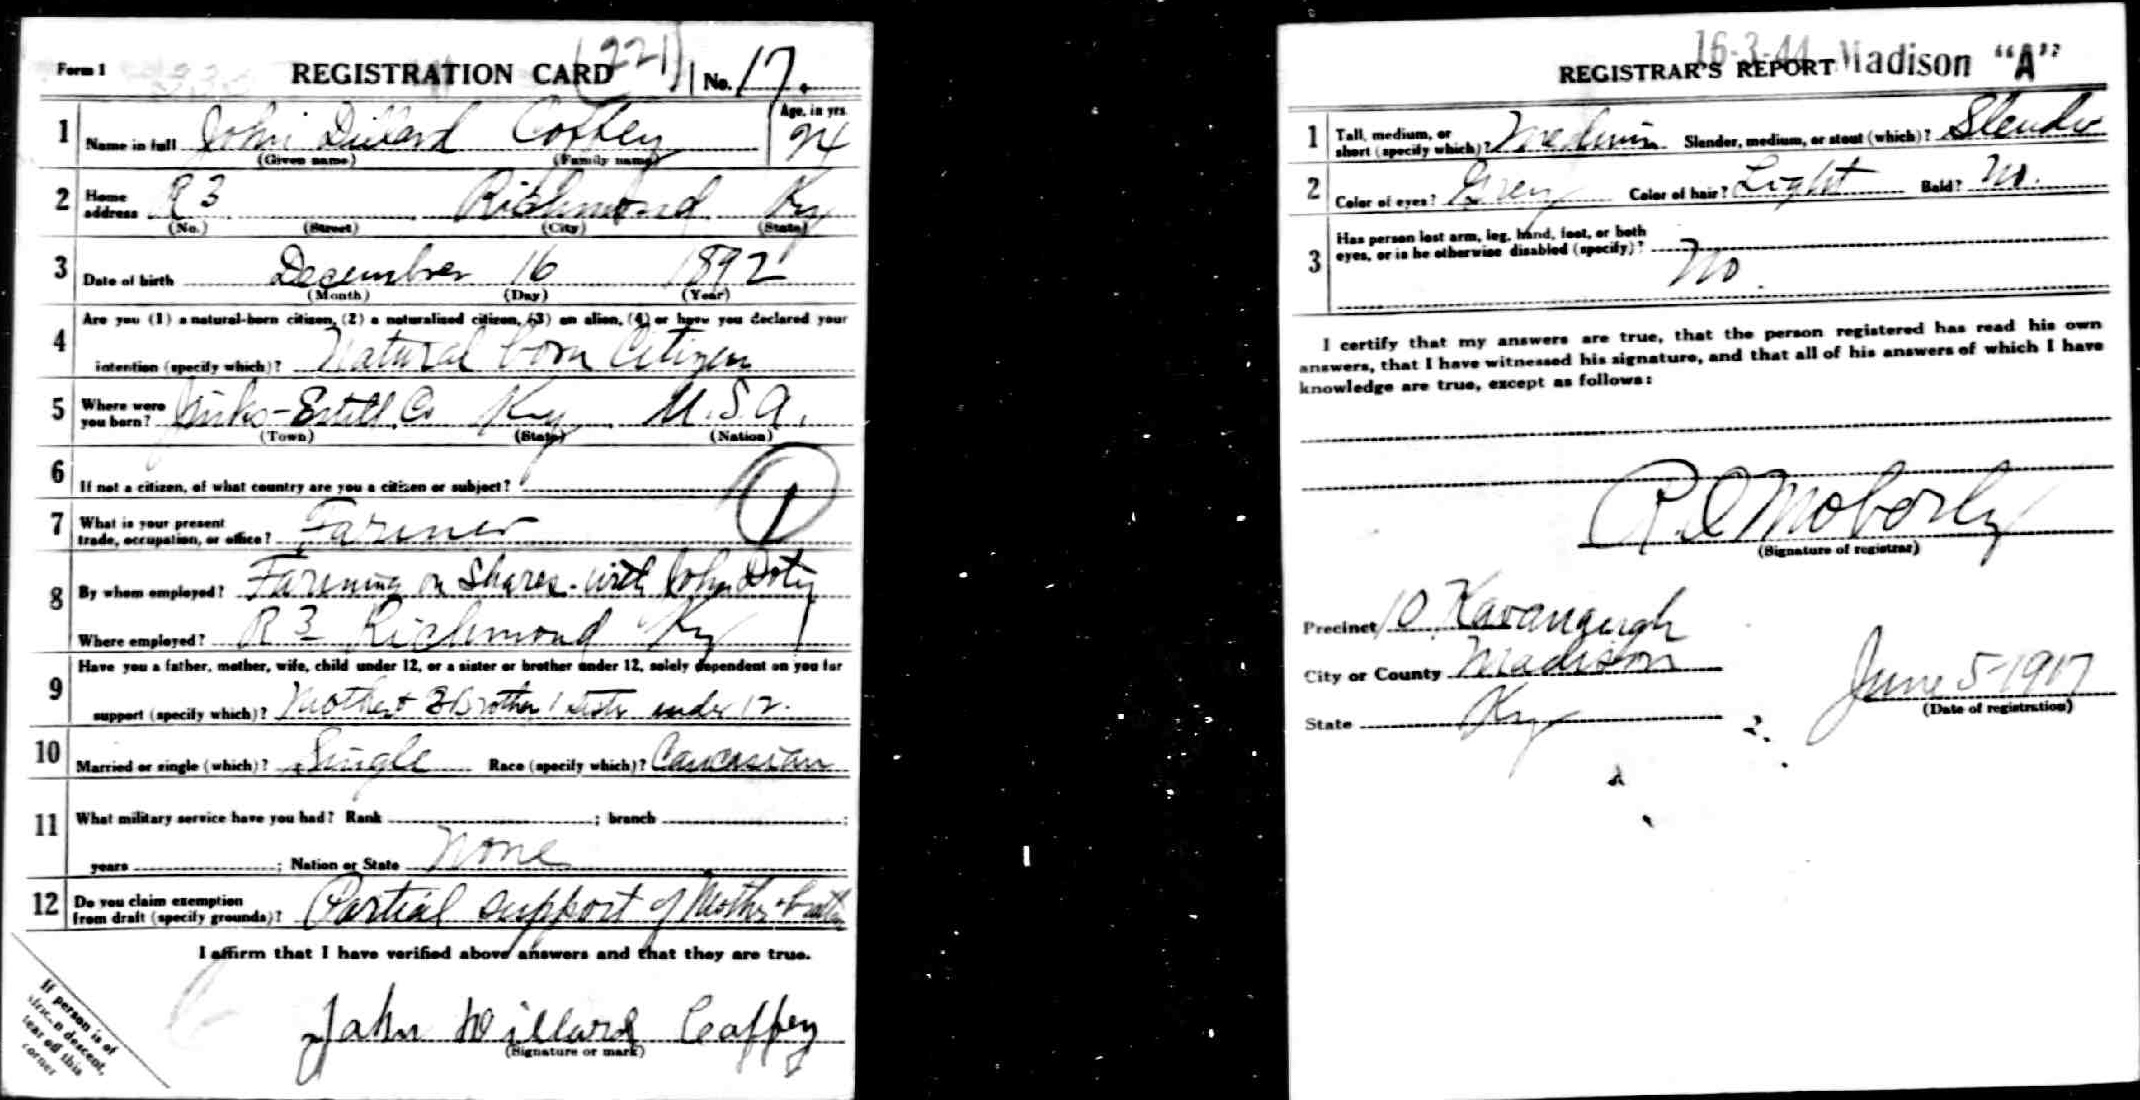 Form 1
REGISTRATION CARD
(221)
No. 17.
1 Name in full John Dillard Coffey
(Given name) (Family name)
Age, in yrs.
24
2 Home address R 3 Richmond Ky
(No.) (Street) (City) (State)
3 Date of birth December 16 1892
(Month) (Day) (Year)
4 Are you (1) a natural-born citizen, (2) a naturalized citizen, (3) an alien, (4) or have you declared your
intention (specify which)? Natural born Citizen
5 Where were you born? Jinks-Estill Co Ky U.S.A.
(Town) (State) (Nation)
6 If not a citizen, of what country are you a citizen or subject?
1
7 What is your present trade, occupation, or office? Farmer
8 By whom employed? Farming on Shares. with John Doty
Where employed? R 3 Richmond Ky
9 Have you a father, mother, wife, child under 12, or a sister or brother under 12, solely dependent on you for
support (specify which)? Mother + brother 1 sister under 12.
10 Married or single (which)? Single Race (specify which)? Caucasian
11 What military service have you had? Rank ; branch ;
years ; Nation or State None
12 Do you claim exemption from draft (specify grounds)? Partial support of Mother +
I affirm that I have verified above answers and that they are true.
John Dillard Coffey
(Signature or mark)
If person is of
African descent,
tear off this
corner
16-3-44 Madison "A"
REGISTRAR'S REPORT
1 Tall, medium, or short (specify which)? Medium Slender, medium, or stout (which)? Slender
2 Color of eyes? Grey Color of hair? Light Bald? No.
3 Has person lost arm, leg, hand, foot, or both
eyes, or is he otherwise disabled (specify)?
No.
I certify that my answers are true, that the person registered has read his own
answers, that I have witnessed his signature, and that all of his answers of which I have
knowledge are true, except as follows:
Moberly
(Signature of registrar)
Precinct 10 Kavanaugh
City or County Madison
State Ky
June 5-1917
(Date of registration)